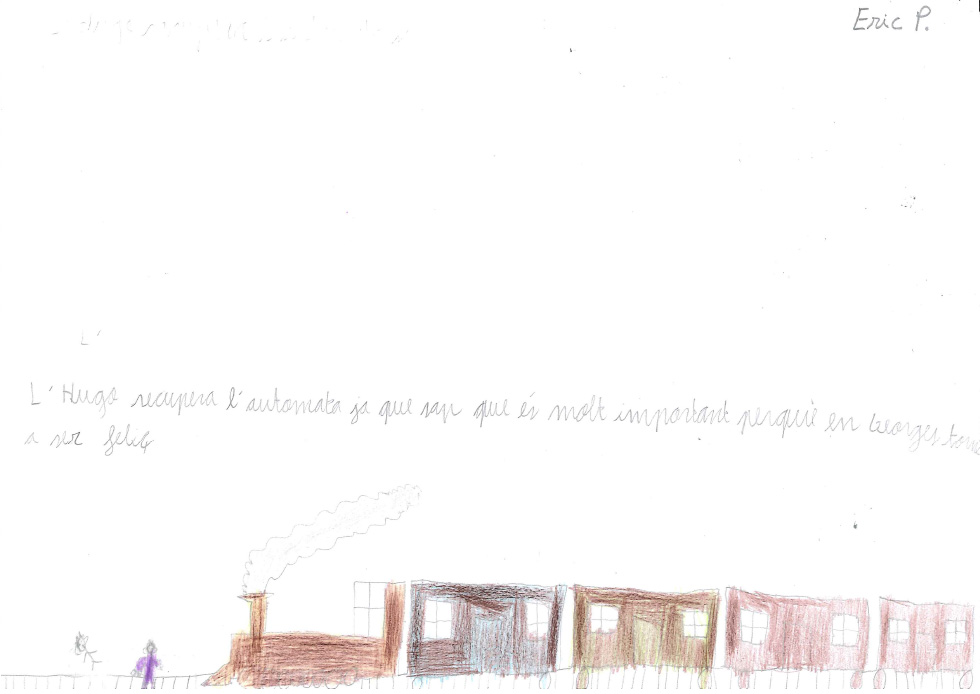 Eric P.
L'
L'Hugo recupera l'automata ja que sap que és molt important perquè en Georges torne
a ser feliç